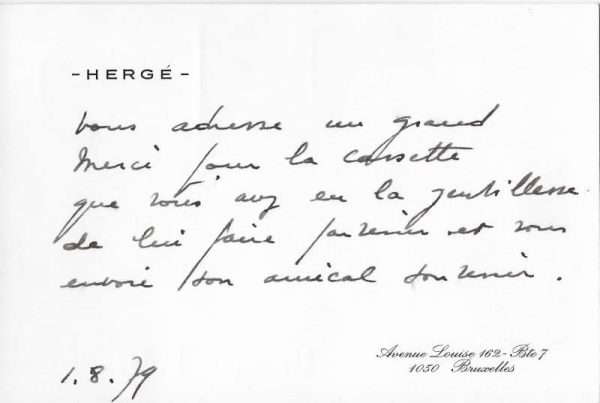 - HERGÉ -
vous adresse un grand
merci pour la cassette
que vous avez eu la gentillesse
de lui faire parvenir et vous
envoie son amical souvenir.
Avenue Louise 162 - Bte 7
1050 Bruxelles
1.8.79